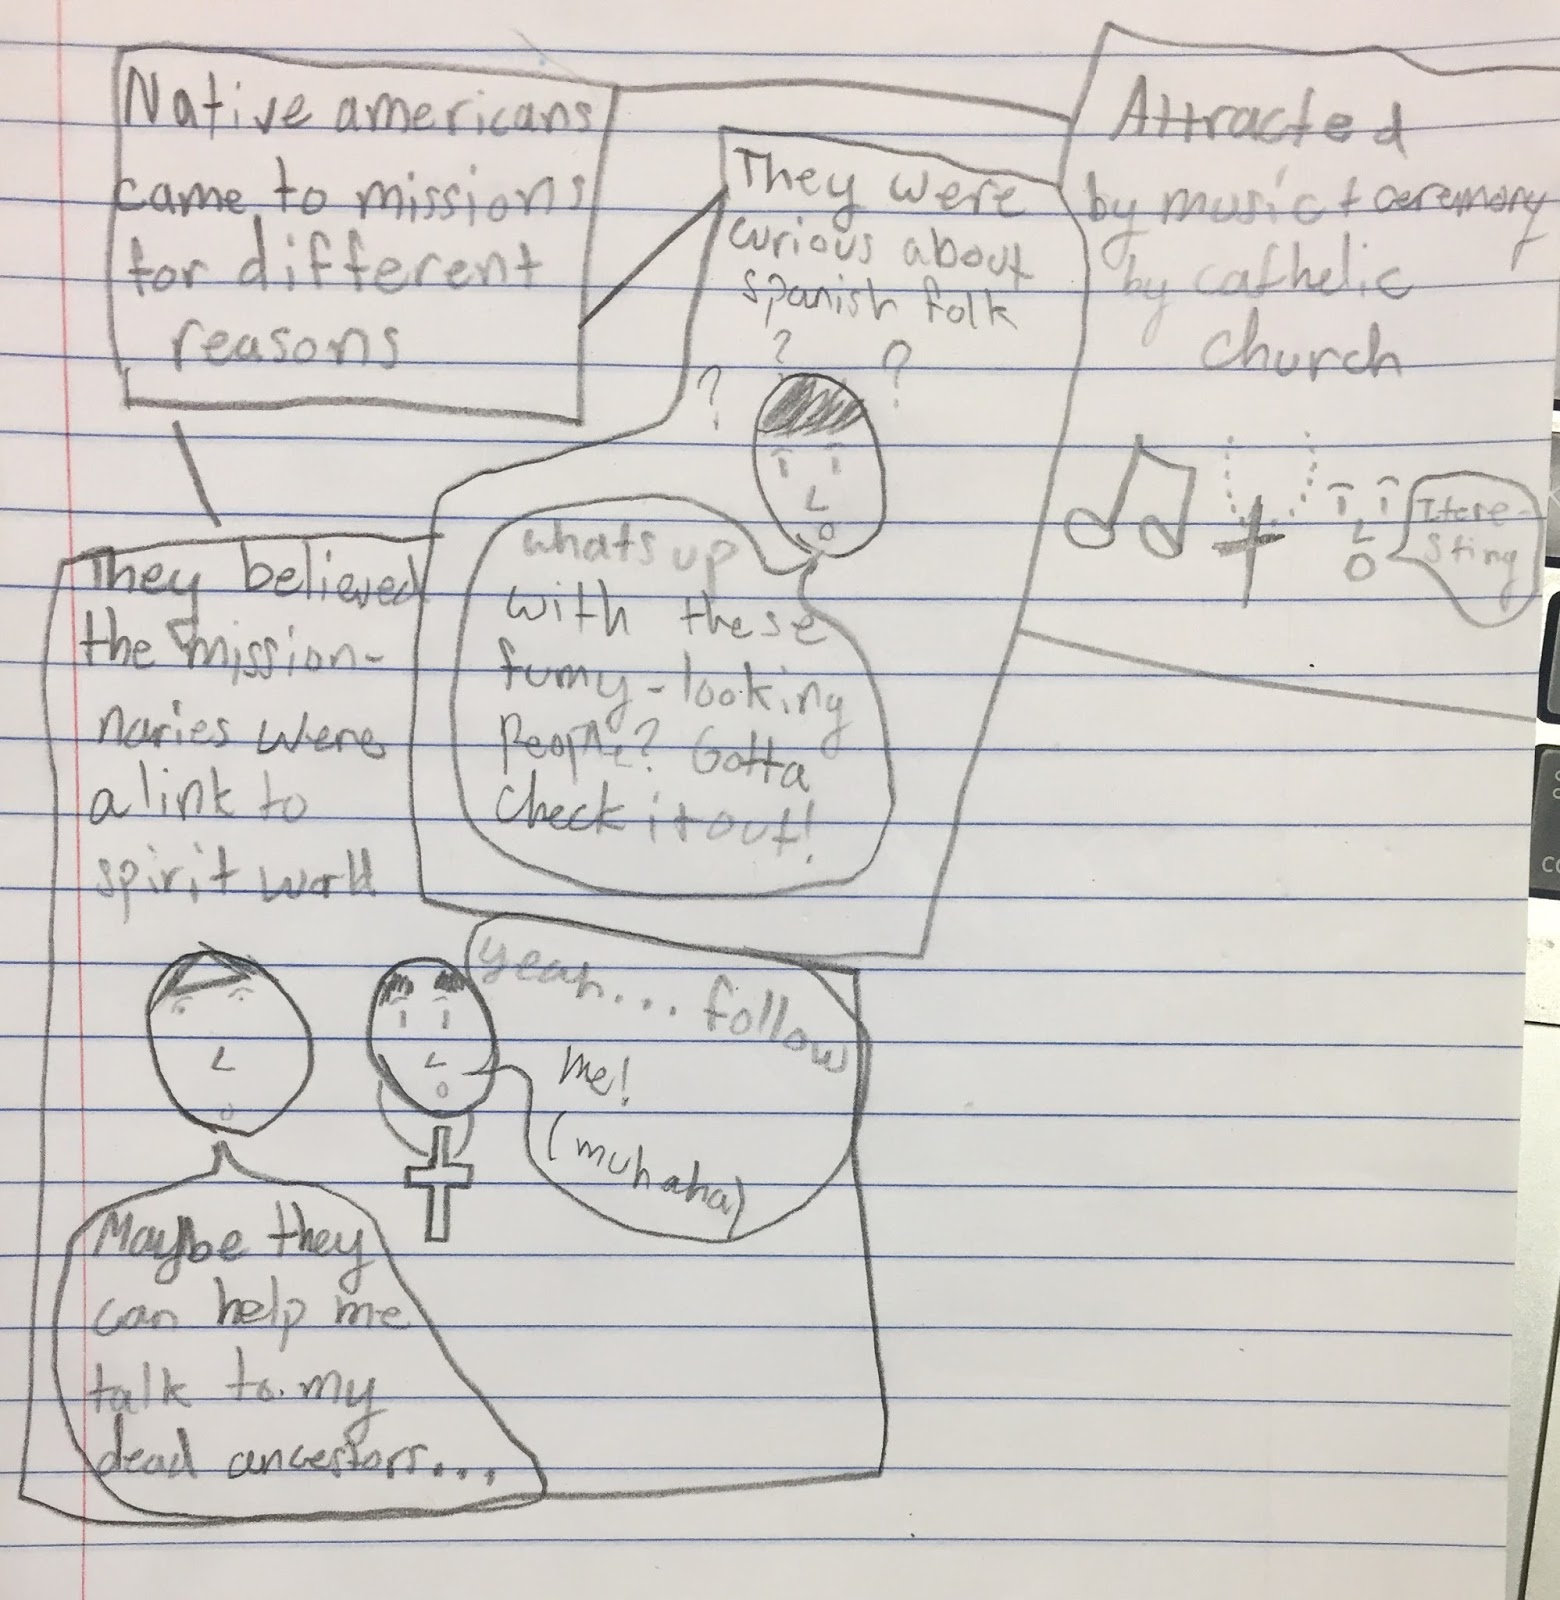 Native americans
came to missions
for different
reasons
They were
curious about
spanish folk
? ? ?
whats up
with these
funny-looking
people? Gotta
check it out!
Attracted
by music + ceremony
by catholic
church
Itere-
sting
They believed
the mission-
naries were
a link to
spirit world
yeah... follow
me!
(muhaha)
Maybe they
can help me
talk to my
dead ancestors...